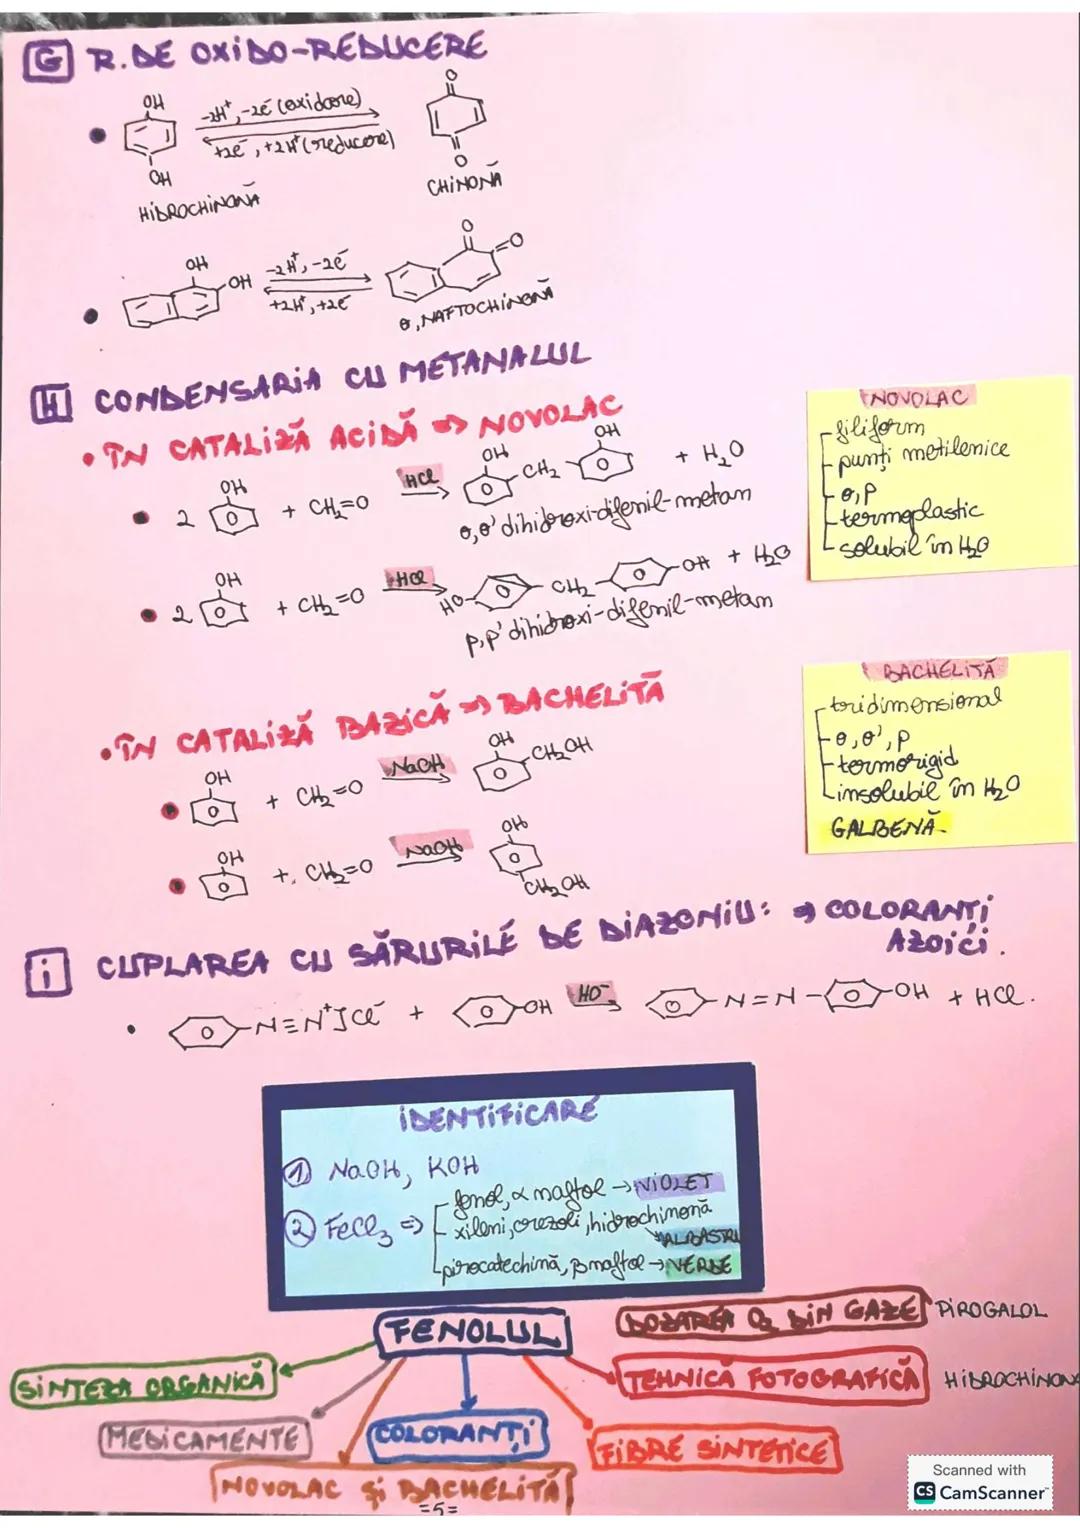 G R. DE OXIDO-REDUCERE
OH
-2H⁺, -2e⁻ (oxidare)
+2e⁻, +2H⁺ (reducere)
O
OH
O
HIDROCHINONĂ
CHINONĂ
OH
OH
-2H⁺, -2e⁻
+2H⁺, +2e⁻
O
O
o, NAFTOCHINONĂ
H CONDENSARIA CU METANALUL
• ÎN CATALIZĂ ACIDĂ => NOVOLAC
2 OH + CH₂=O HCl OH CH₂ OH + H₂O
o,o' dihidroxi-difenil-metan
2 OH + CH₂=O HCl HO CH₂ OH + H₂O
p,p' dihidroxi-difenil-metan
NOVOLAC
- filiform
- punți metilenice
- o,p
- termoplastic
- solubil în H₂O
• ÎN CATALIZĂ BAZICĂ => BACHELITĂ
OH + CH₂=O NaOH OH CH₂OH
OH + CH₂=O NaOH OH CH₂OH
BACHELITĂ
- tridimensional
- o,o',p
- termorigid
- insolubil în H₂O
GALBENĂ
i CUPLAREA CU SĂRURILE DE DIAZONIU: => COLORANȚI
AZOICI.
N≡N⁺]Cl⁻ + OH HO⁻ N=N OH + HCl.
IDENTIFICARE
1) NaOH, KOH
2) FeCl₃ => fenol, α naftol → VIOLET
xileni, crezoli, hidrochinonă
ALBASTRU
pirocatechină, β naftol → VERDE
FENOLUL
DOZAREA O₂ DIN GAZE PIROGALOL
SINTEZA ORGANICĂ
TEHNICĂ FOTOGRAFICĂ HIDROCHINONA
MEDICAMENTE
COLORANȚI
FIBRE SINTETICE
NOVOLAC ȘI BACHELITĂ
=5=
Scanned with
CS CamScanner